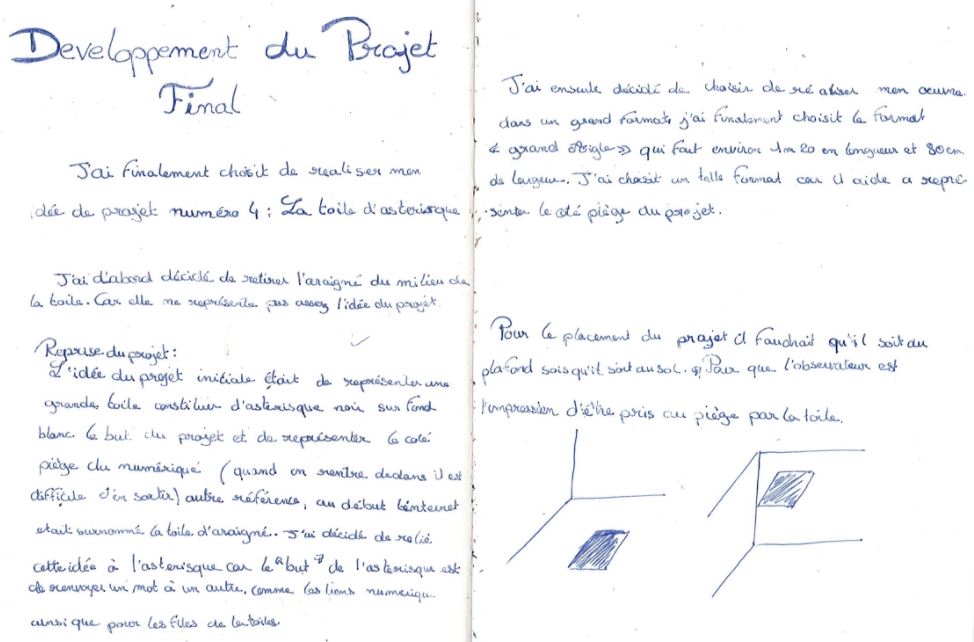 Developpement du Projet
Final
J'ai finalement choisit de realiser mon
idée de projet numéro 4 : La toile d'asterisque
J'ai d'abord décidé de retirer l'araigné du milieu de
la toile. Car elle ne représente pas assez l'idée du projet.
Reprise du projet :
L'idée du projet initiale était de représenter une
grande toile constituer d'asterisque noir sur fond
blanc le but du projet et de représenter le coté
piège du numérique (quand on rentre dedans il est
difficile d'en sortir) autre référence, au début l'internet
etait surnommé la toile d'araigné. J'ai décidé de relié
cette idée à l'asterisque car le "but" de l'asterisque est
de renvoyer un mot à un autre, comme les liens numerique
ainsi que pour les files de la toiles.
J'ai ensuite décidé de choisir de réaliser mon oeuvre
dans un grand format, j'ai finalement choisit le format
« grand Aigle » qui fait environ 1m20 en longueur et 80cm
de largeur. J'ai choisit un telle format car il aide a repré-
senter le coté piège du projet.
Pour le placement du projet il faudrait qu'il soit au
plafond sois qu'il soit au sol. Pour que l'observateur est
l'impression d'être pris au piège par la toile.